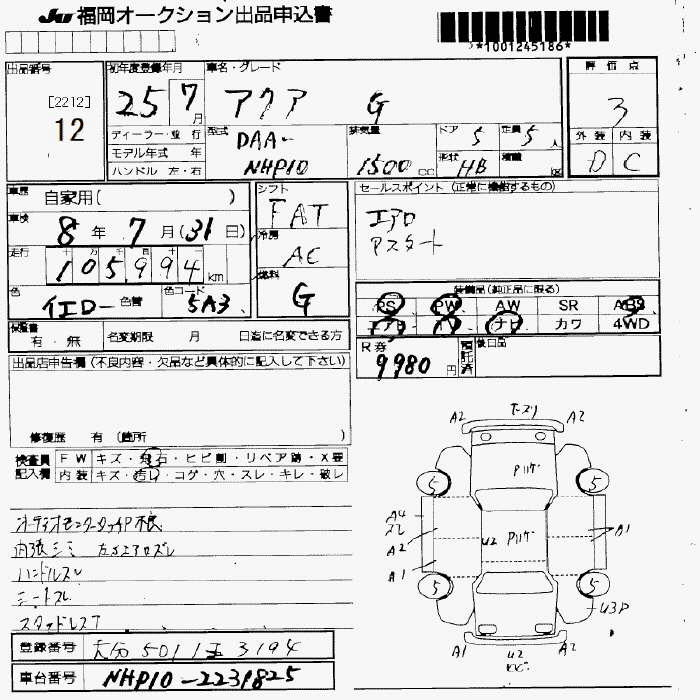 JU 福岡オークション出品申込書
*1001245186*
出品番号
[2212]
12
初年度登録年月
25 7 月
車名・グレード
アクア G
評価点
3
ディーラー・並行
モデル年式 年
ハンドル 左・右
型式
DAA-
NHP10
排気量
1500 cc
ドア 5
定員 5 人
形状 HB
積載
外装 内装
D C
車歴
自家用( )
車検
8 年 7 月(31日)
走行
105,994 km
色
イエロー 色替
色コード
5A3
シフト
FAT
冷房
AC
燃料
G
セールスポイント(正常に機能するもの)
エアロ
アスタート
装備品(純正品に限る)
PS PW AW SR ABS
エアB TV ナビ カワ 4WD
保証書
有・無
名変期限 月 日迄に名変できる方
R券
9980円
預託済
後日品
出品店申告欄(不良内容・欠品など具体的に記入して下さい)
修復歴 有(箇所 )
検査員
記入欄
FW キズ・飛石・ヒビ割・リペア跡・X要
内装 キズ・汚れ・コゲ・穴・スレ・キレ・破レ
内張シミ 左Sエアロズレ
ハンドルスレ
シートスレ
スタッドレス7
登録番号
大分 501
3194
車台番号
NHP10-2231825
A2 A2
5 5
A4
A2
A1
U2
A1
5 5
U3P
A1 U2 A2